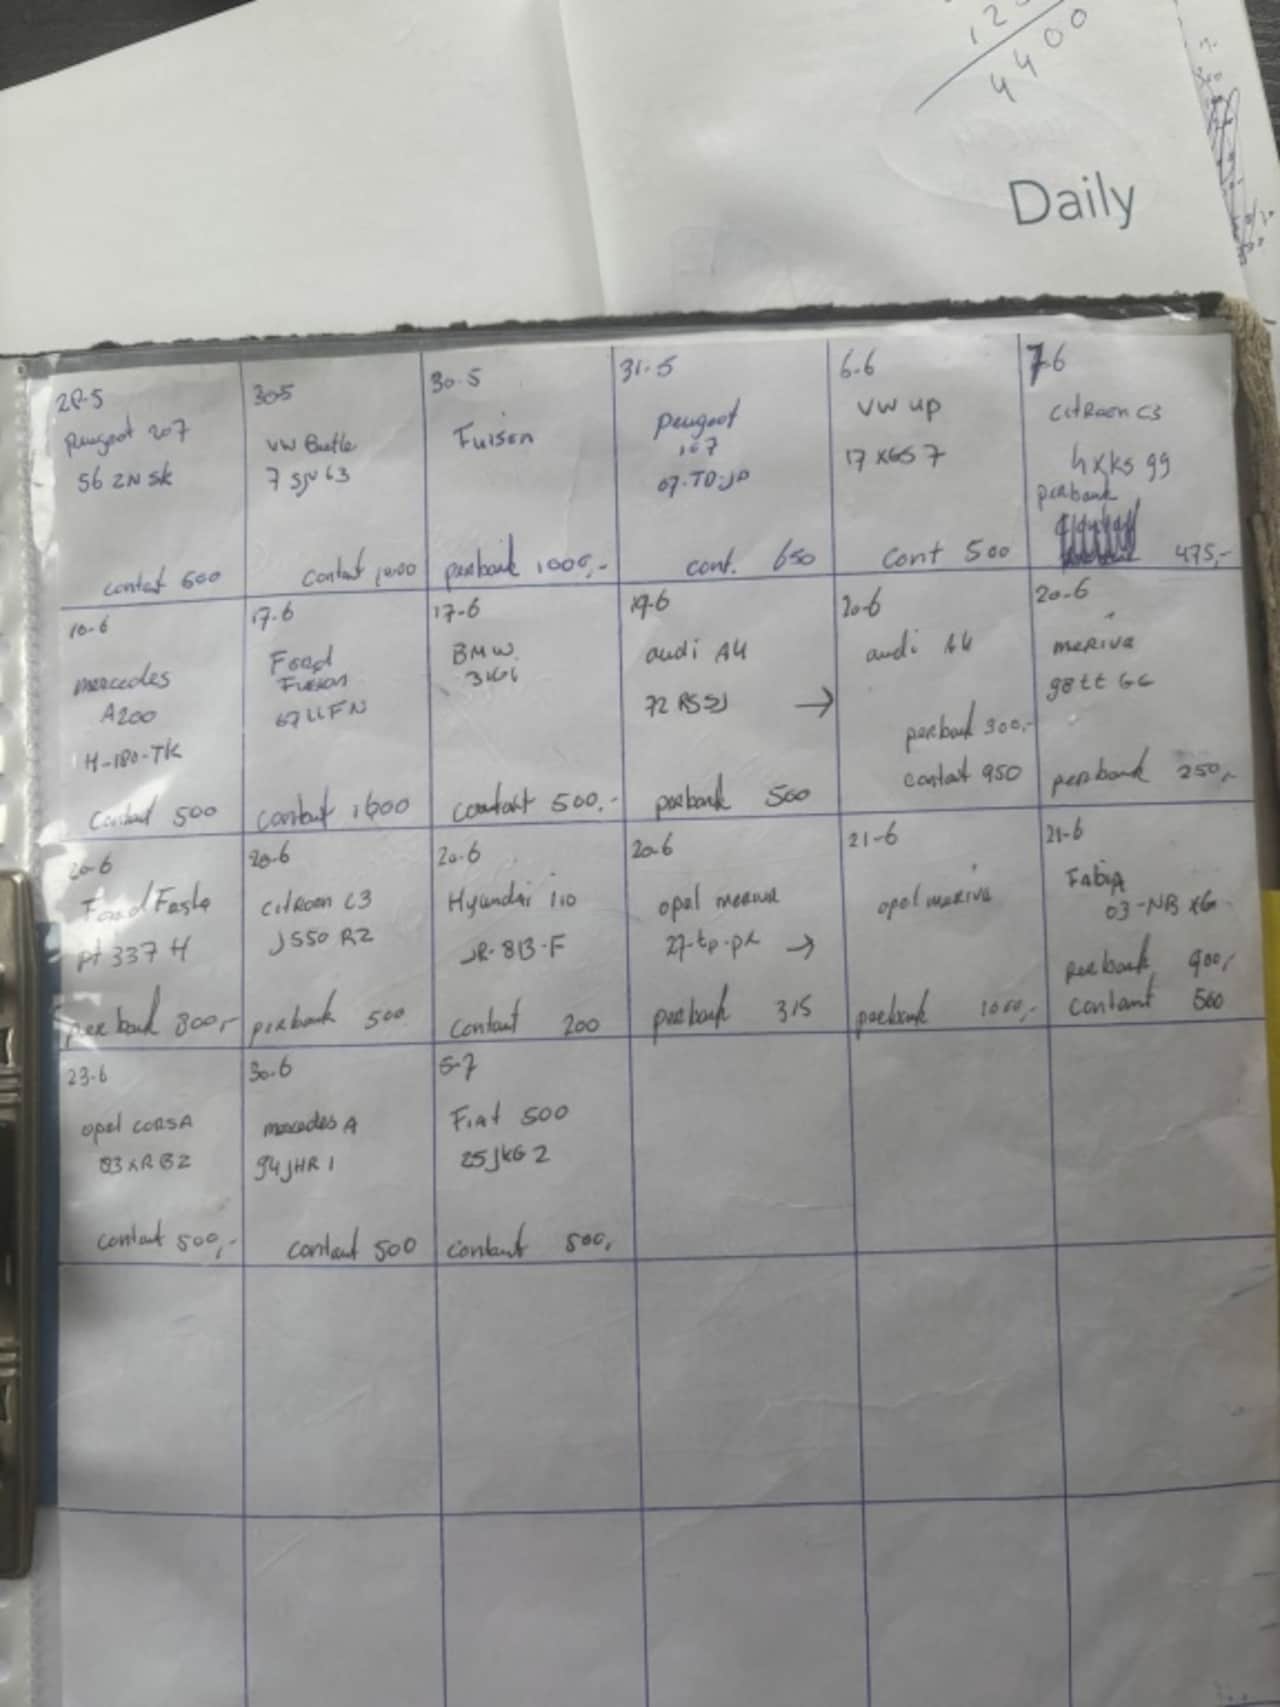 4400
Daily
30-5
Peugeot 207
56 ZN SK
contat 600
305
VW Beetle
7 SJV 63
Contat
30-5
Fuison
perbank 1000,-
31-5
peugeot
107
07-TD-JP
cont. 650
6-6
VW up
17 XGS 7
Cont 500
7-6
Citroen C3
hxks 99
perbank
475,-
10-6
mercedes
A200
H-180-TK
Contant 500
17-6
Ford
Fusion
67LLFN
contant 1600
17-6
BMW
316i
contant 500,-
19-6
audi A4
72 RSSJ →
perbank 500
20-6
audi A4
perbank 300,-
contant 950
20-6
meriva
98 tt GG
perbank 250,-
20-6
Ford Festa
pt 337 H
per bank 800,-
20-6
citroen C3
J550 RZ
perbank 500
20-6
Hyundai i10
JR-813-F
Contant 200
20-6
opel meriva
27-tp-pk →
perbank 315
21-6
opel meriva
perbank 1000,-
21-6
Fabia
03-NB XG
per bank 900,-
contant 500
23-6
opel CORSA
83 XR BZ
contant 500,-
30-6
mercedes A
94JHR 1
contant 500
5-7
Fiat 500
25JKG 2
contant 500,